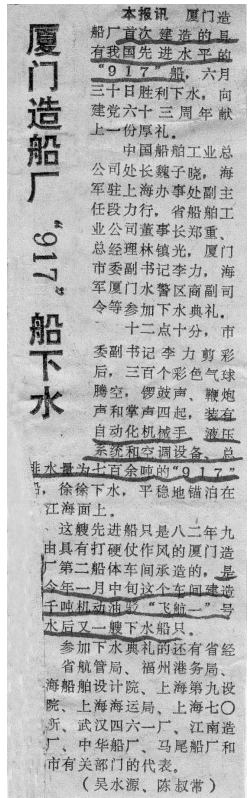 厦门造船厂“917”船下水
本报讯 厦门造
船厂首次建造的具
有我国先进水平的
“917”船，六月
三十日胜利下水，向
建党六十三周年献
上一份厚礼。
中国船舶工业总
公司处长魏子晓，海
军驻上海办事处副主
任段力行，省船舶工
业公司董事长郑重、
总经理林镇光，厦门
市委副书记李力，海
军厦门水警区商副司
令等参加下水典礼。
十二点十分，市
委副书记李力剪彩
后，三百个彩色气球
腾空，锣鼓声、鞭炮
声和掌声四起，装有
自动化机械手、液压
系统和空调设备、总
排水量为七百余吨的“917”
船，徐徐下水，平稳地锚泊在
江海面上。
这艘先进船只是八二年九
由具有打硬仗作风的厦门造
厂第二船体车间承造的，是
今年一月中旬这个车间建造
千吨机动油驳“飞航一”号
水后又一艘下水船只。
参加下水典礼的还有省经
省航管局、福州港务局、
海船舶设计院、上海第九设
院、上海海运局、上海七〇
所、武汉四六一厂、江南造
厂、中华船厂、马尾船厂和
市有关部门的代表。
（吴水源、陈叔常）